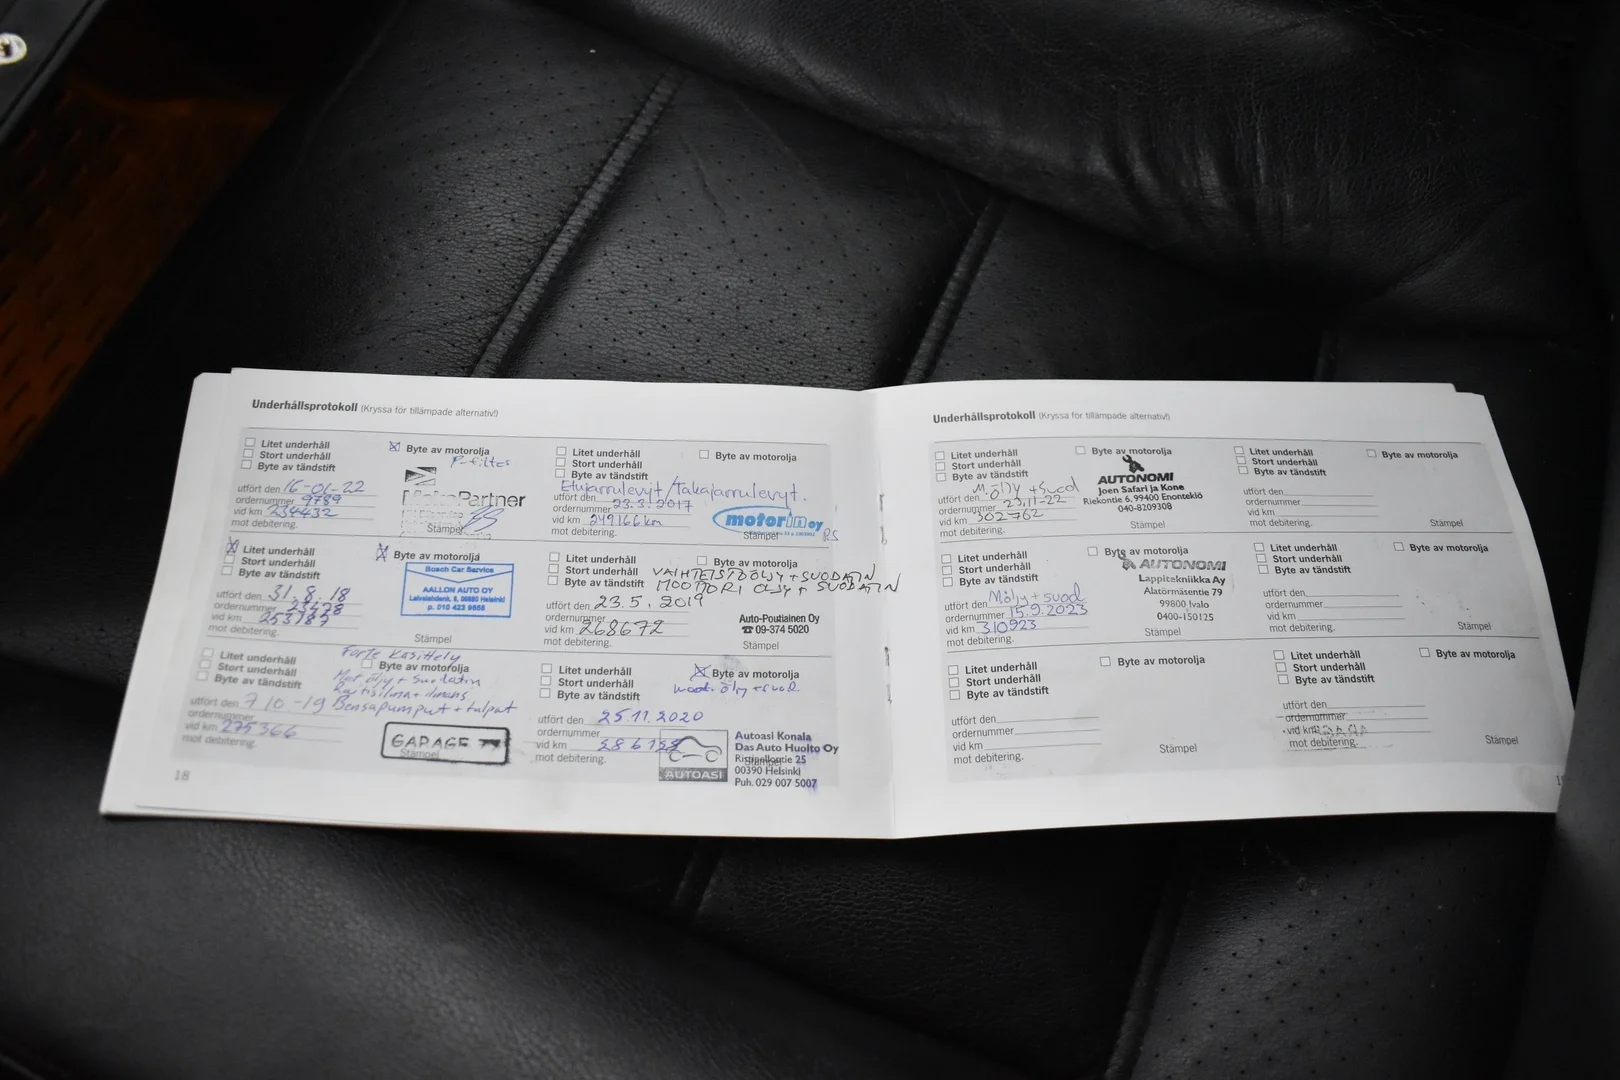 Underhållsprotokoll (Kryssa för tillämpade alternativ!)
Litet underhåll
Stort underhåll
Byte av tändstift
Byte av motorolja
utfört den 16-01-22
ordernummer 9789
vid km 234432
mot debitering.
Partner
Stämpel
Litet underhåll
Stort underhåll
Byte av tändstift
Byte av motorolja
Etujarrulevyt/takajarrulevyt.
utfört den 23.3.2017
ordernummer
vid km 249166 km
mot debitering.
motorin oy
Stämpel
Litet underhåll
Stort underhåll
Byte av tändstift
Byte av motorolja
utfört den 31.8.18
ordernummer 23478
vid km 253787
mot debitering.
Bosch Car Service
AALLON AUTO OY
p. 010 423 9888
Stämpel
Litet underhåll
Stort underhåll
Byte av tändstift
Byte av motorolja
VAIHTEISTOÖLJY + SUODATIN
MOOTTORI ÖLJY + SUODATIN
utfört den 23.5.2019
ordernummer
vid km 268672
mot debitering.
Auto-Poutiainen Oy
☎ 09-374 5020
Stämpel
Litet underhåll
Stort underhåll
Byte av tändstift
Forte käsittely
Byte av motorolja
Mot öljy + Suodatin
Raitisilma + ilmans
Bensapumput + tulpat
utfört den 7 10 -19
ordernummer
vid km 275366
mot debitering.
GARAGE
Stämpel
Litet underhåll
Stort underhåll
Byte av tändstift
Byte av motorolja
moot. öljy + suod.
utfört den 25.11.2020
ordernummer
vid km
mot debitering.
AUTOASI
Autoasi Konala
Das Auto Huolto Oy
Ristipellontie 25
00390 Helsinki
Puh. 029 007 5007
Stämpel
18
Underhållsprotokoll (Kryssa för tillämpade alternativ!)
Litet underhåll
Stort underhåll
Byte av tändstift
Byte av motorolja
M öljy + suod
utfört den 23.11-22
ordernummer
vid km 302762
mot debitering.
AUTONOMI
Joen Safari ja Kone
Riekontie 6, 99400 Enontekiö
040-8209308
Stämpel
Litet underhåll
Stort underhåll
Byte av tändstift
Byte av motorolja
utfört den
ordernummer
vid km
mot debitering.
Stämpel
Litet underhåll
Stort underhåll
Byte av tändstift
Byte av motorolja
Möljy + suod
utfört den 15.9.2023
ordernummer
vid km 310923
mot debitering.
AUTONOMI
Lappitekniikka Ay
Alatörmäsentie 79
99800 Ivalo
0400-150125
Stämpel
Litet underhåll
Stort underhåll
Byte av tändstift
Byte av motorolja
utfört den
ordernummer
vid km
mot debitering.
Stämpel
Litet underhåll
Stort underhåll
Byte av tändstift
Byte av motorolja
utfört den
ordernummer
vid km
mot debitering.
Stämpel
Litet underhåll
Stort underhåll
Byte av tändstift
Byte av motorolja
utfört den
ordernummer
vid km
mot debitering.
Stämpel